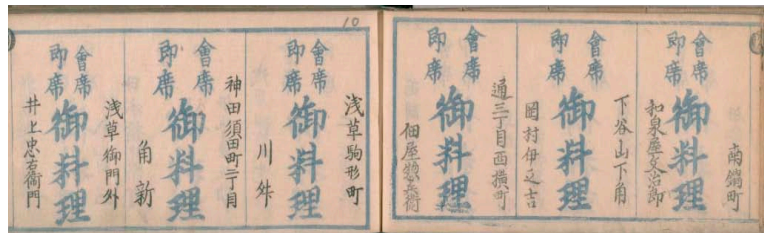 南鍋町
會席
即席
御料理
和泉屋文治郎
下谷山下角
會席
即席
御料理
岡村伊之吉
通三丁目西横町
會席
即席
御料理
佃屋惣兵衛
10
浅草駒形町
會席
即席
御料理
川舛
神田須田町二丁目
會席
即席
御料理
角新
浅草御門外
會席
即席
御料理
井上忠右衛門